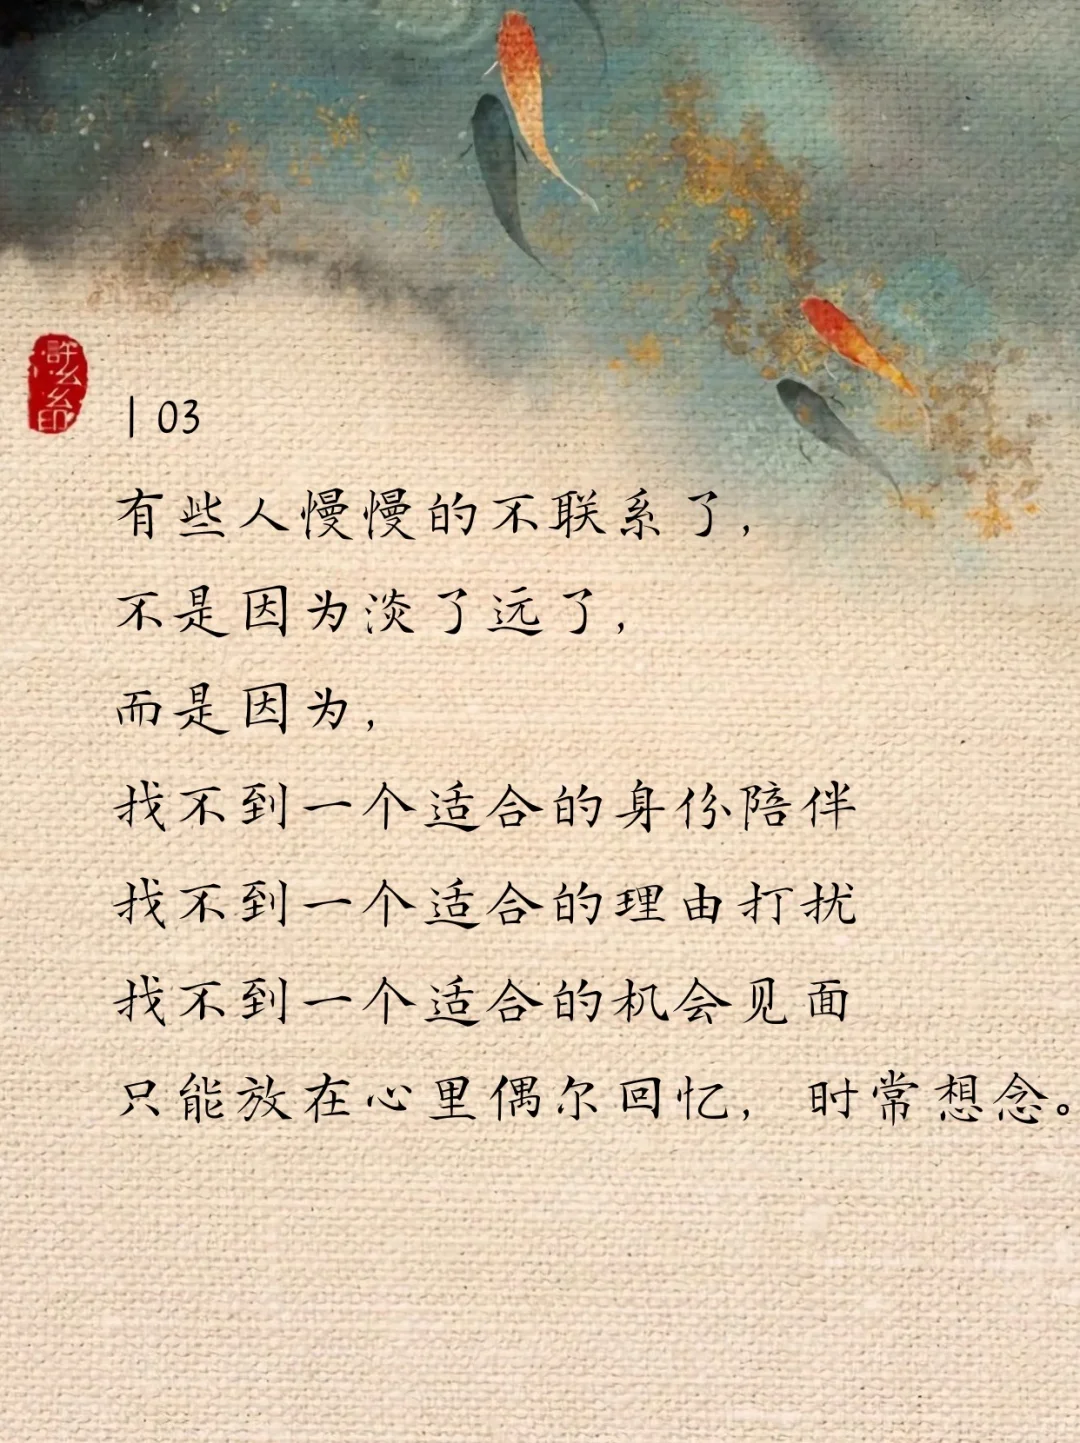 許么么印
| 03
有些人慢慢的不联系了，
不是因为淡了远了，
而是因为，
找不到一个适合的身份陪伴
找不到一个适合的理由打扰
找不到一个适合的机会见面
只能放在心里偶尔回忆，时常想念。